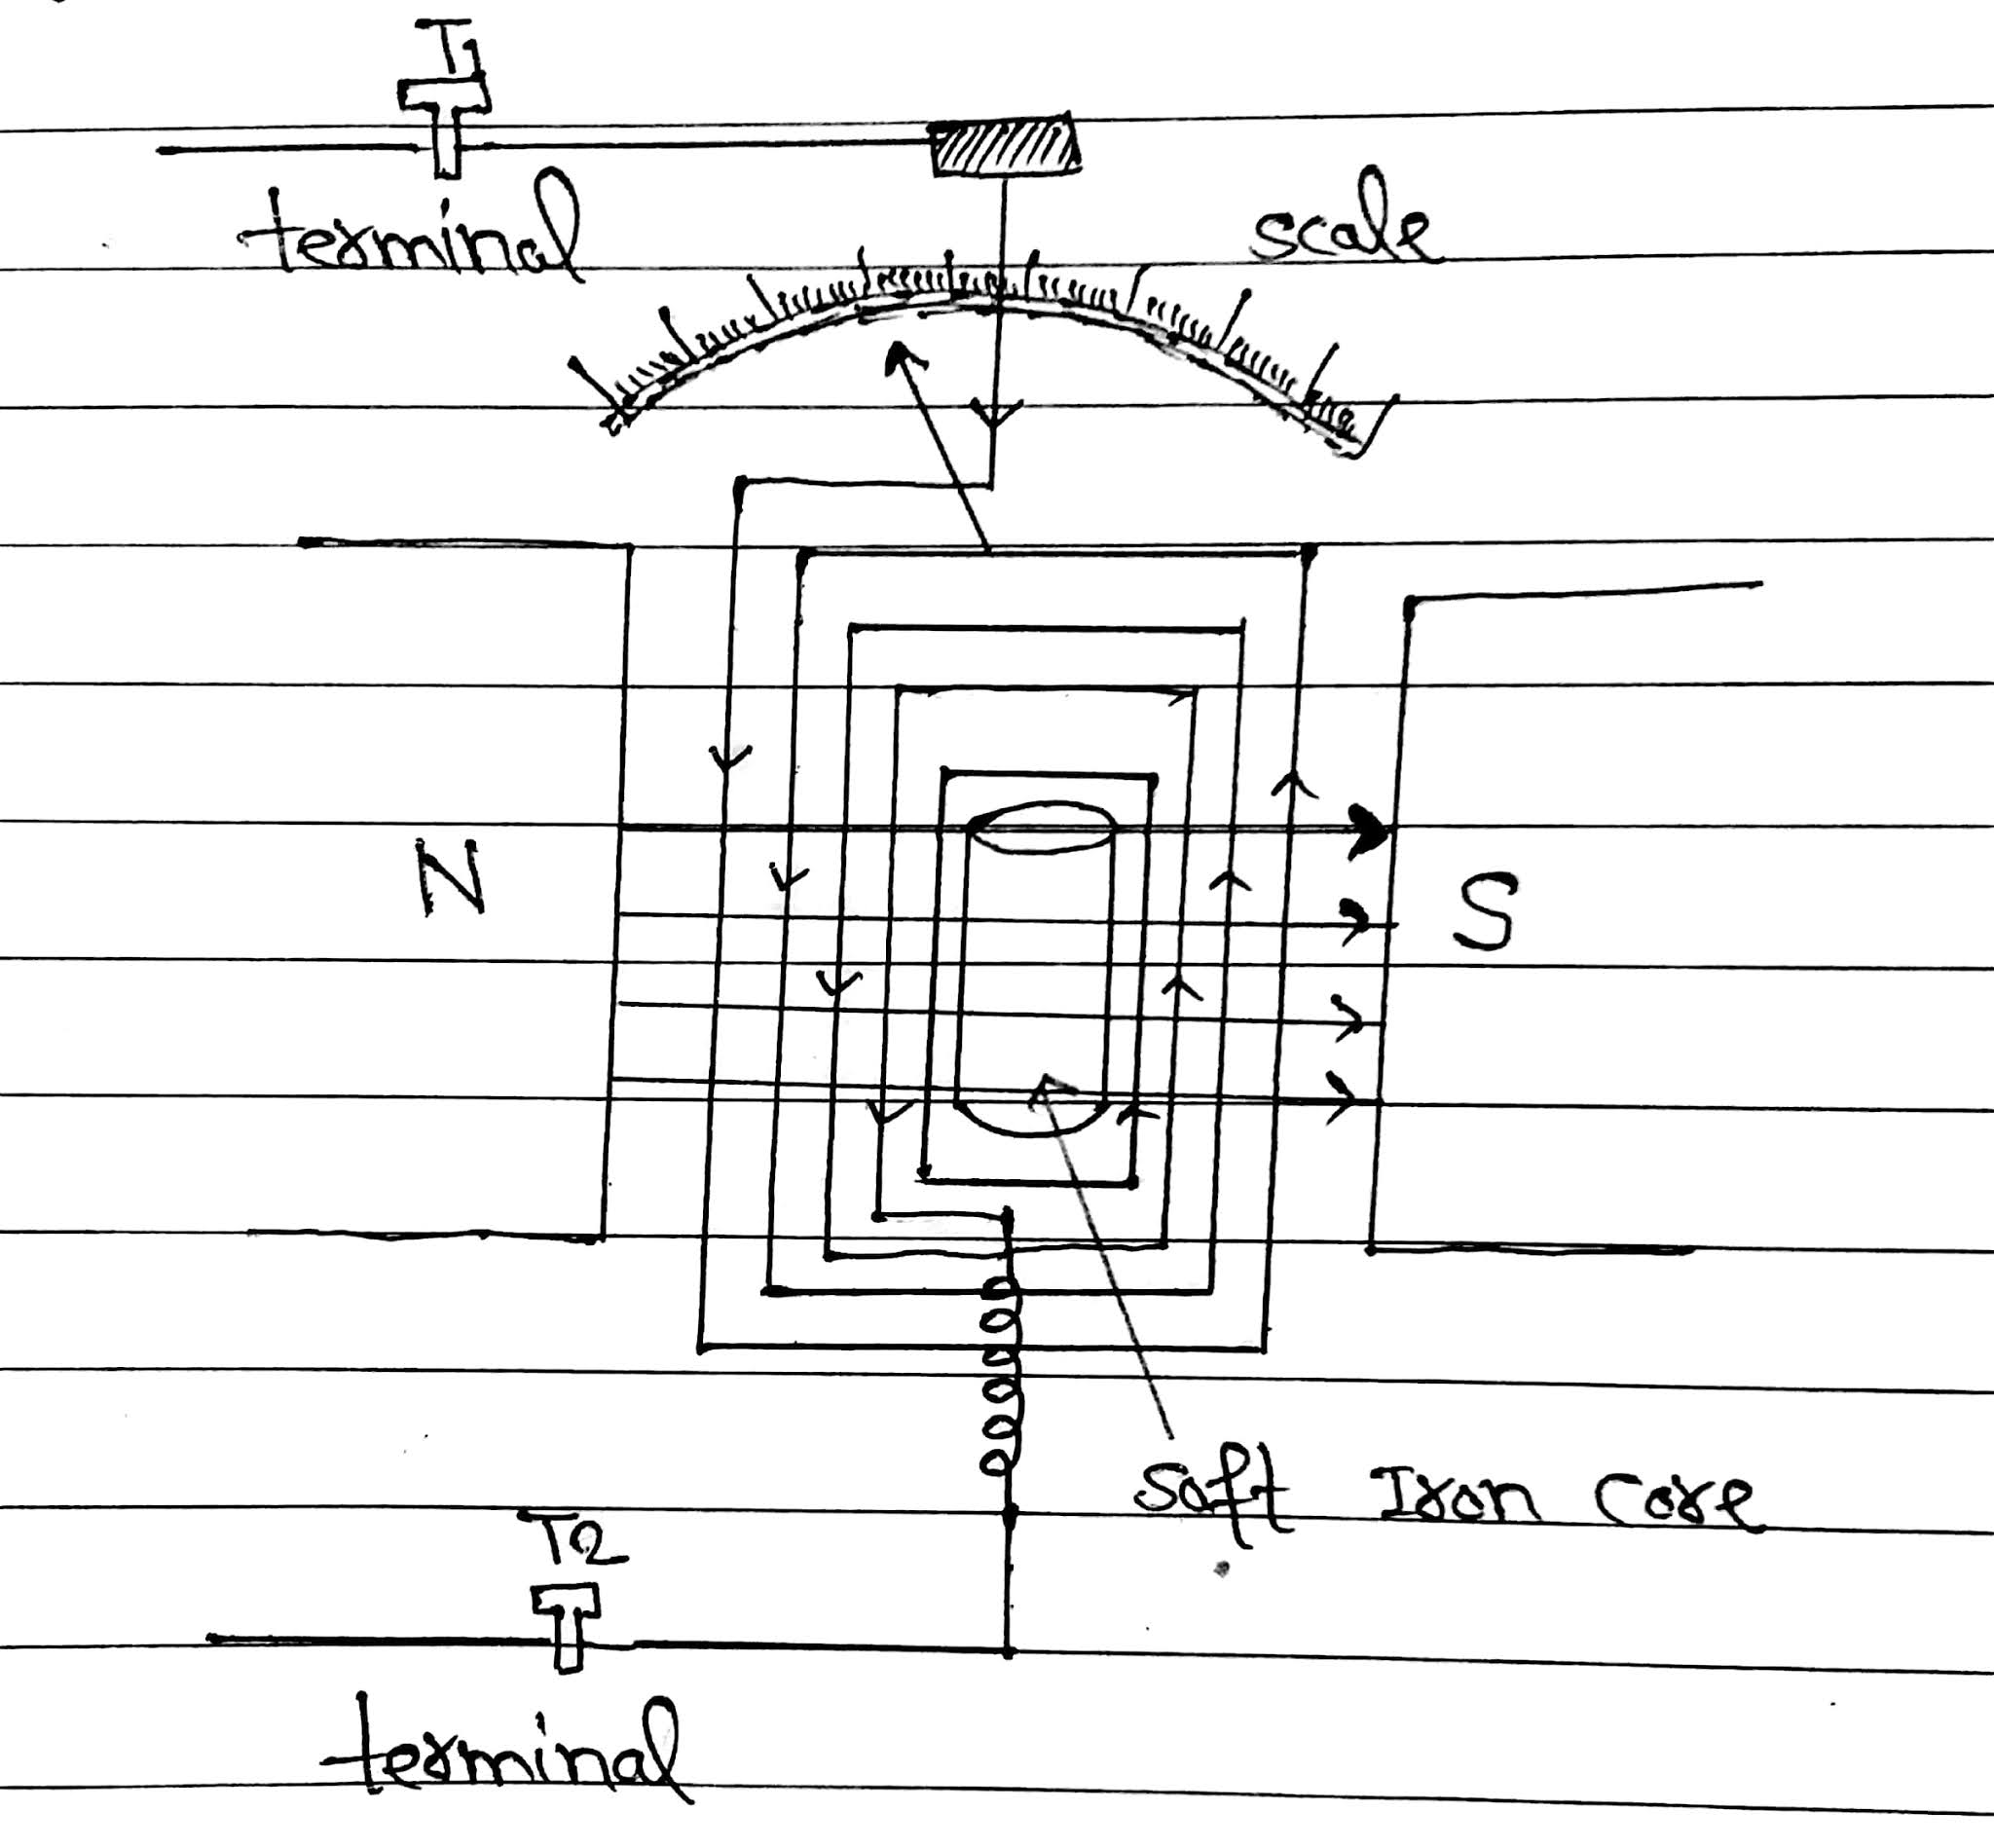 T1
terminal
scale
N
S
soft Iron Core
T2
terminal